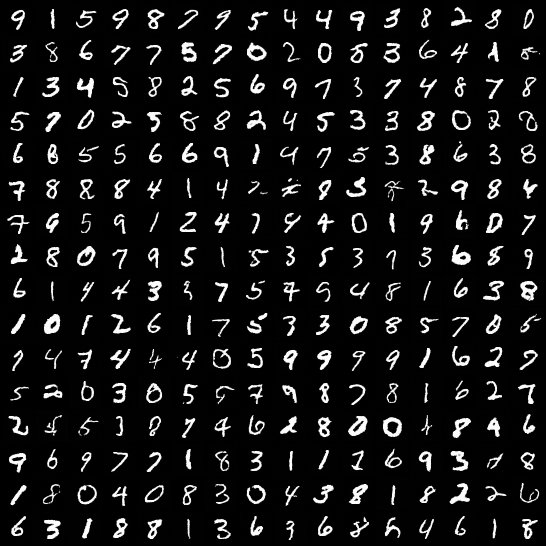 9 1 5 9 8 7 9 5 4 4 9 3 8 2 8 0
3 8 6 7 7 5 7 0 2 0 5 3 6 4 1 5
1 3 4 5 8 2 5 6 9 7 3 7 4 8 7 8
5 7 0 2 5 8 8 2 4 5 3 3 8 0 2 8
6 8 5 5 6 6 9 1 4 7 5 3 8 6 3 8
7 8 8 8 4 1 4 2 8 3 2 9 8 4
7 6 5 9 1 2 4 7 4 4 0 1 9 6 0 7
2 8 0 7 9 5 1 5 3 5 3 7 3 6 8 9
6 1 4 4 3 3 7 5 7 9 4 8 1 6 3 8
1 0 1 2 6 1 7 5 3 3 0 8 5 7 0 5
7 4 7 4 4 4 0 5 9 9 9 9 1 6 2 7
5 2 0 3 0 5 5 7 9 8 7 8 1 6 2 7
2 5 3 8 7 4 6 2 8 0 0 4 8 4 6
9 6 9 7 7 1 8 3 1 1 1 6 9 3 8
1 8 0 4 0 8 3 0 4 3 8 1 8 2 2 6
6 3 1 8 8 1 3 6 3 6 8 4 6 1 8